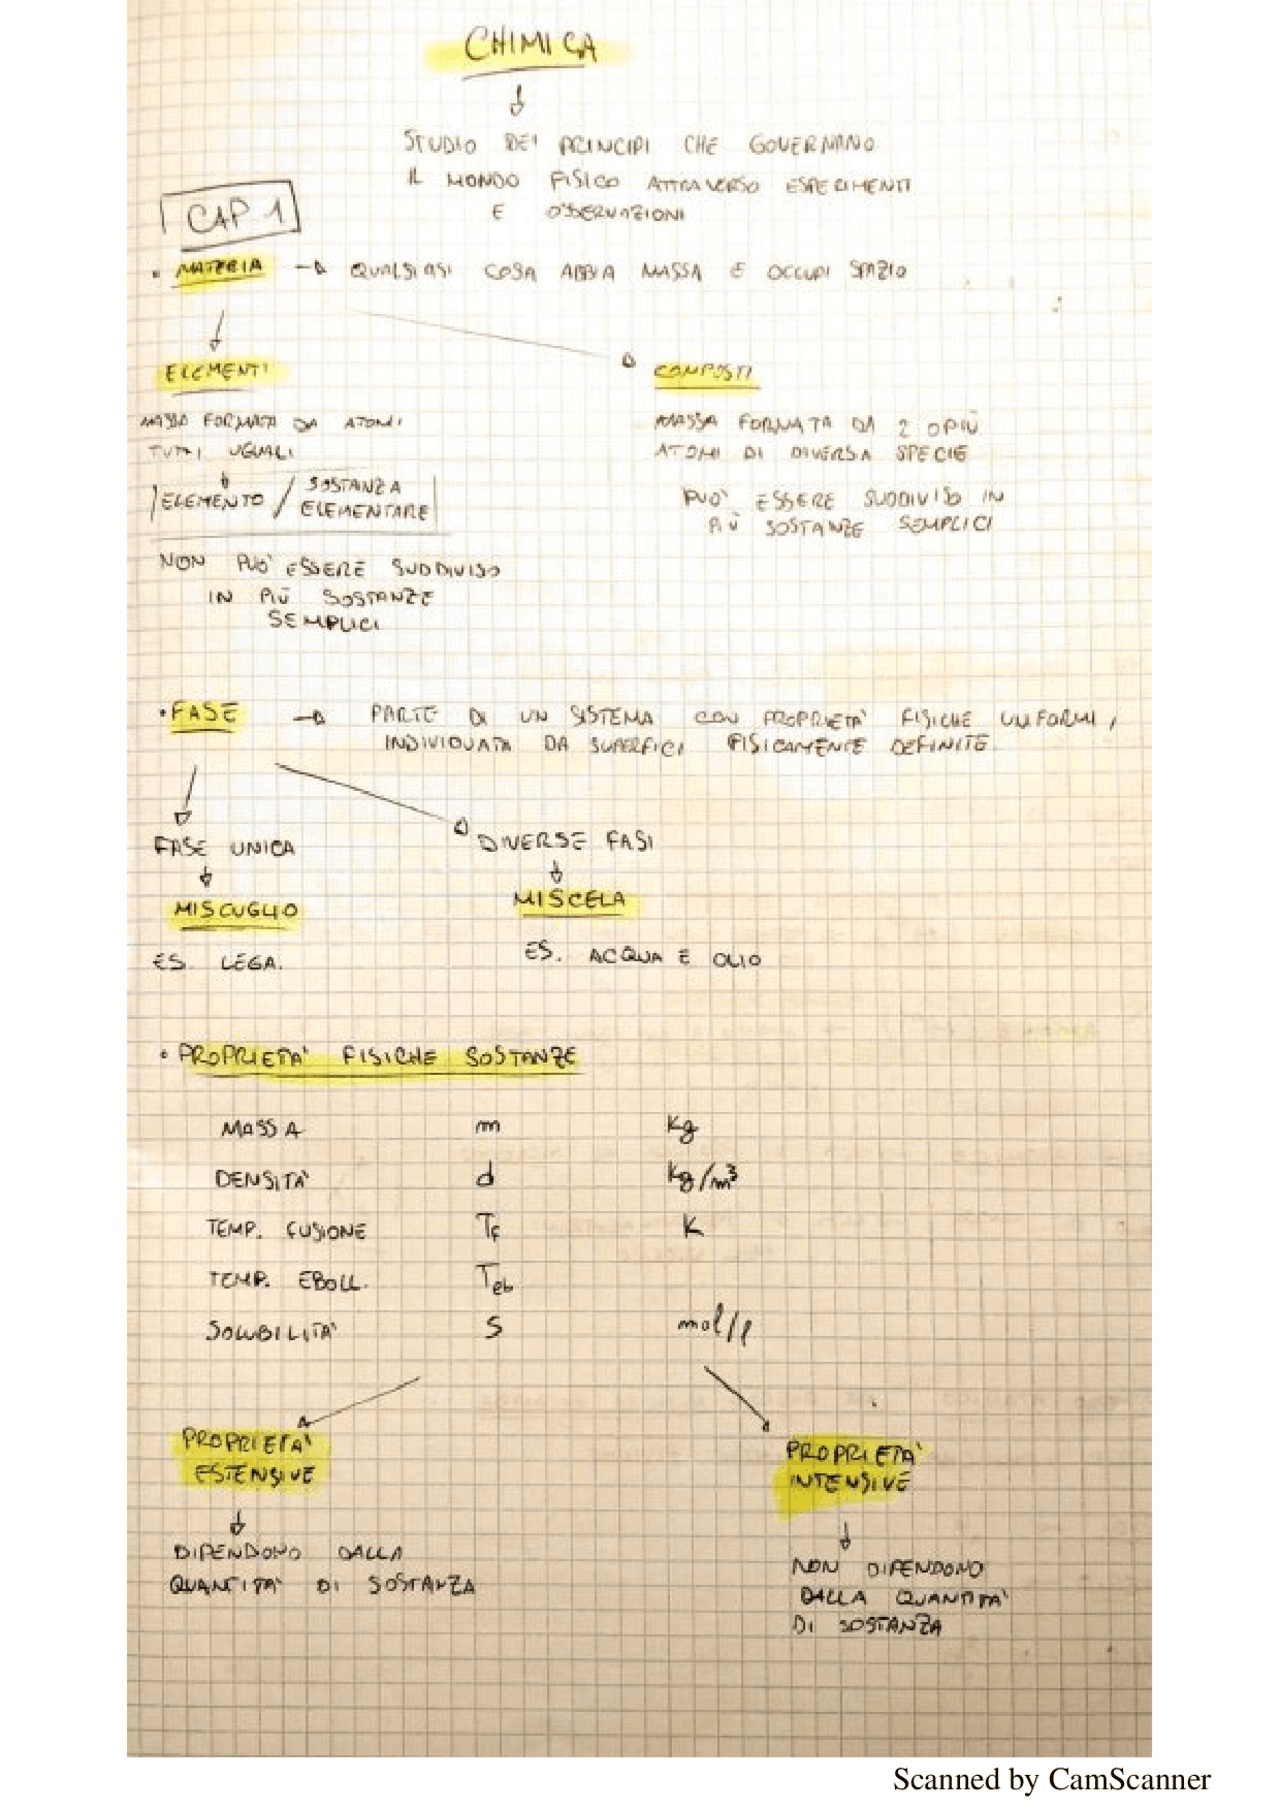 CHIMICA
STUDIO DEI PRINCIPI CHE GOVERNANO
IL MONDO FISICO ATTRAVERSO ESPERIMENTI
E OSSERVAZIONI
CAP 1
• MATERIA → QUALSIASI COSA ABBIA MASSA E OCCUPI SPAZIO
ELEMENTI
MASSA FORMATA DA ATOMI
TUTTI UGUALI
ELEMENTO / SOSTANZA
ELEMENTARE
NON PUO' ESSERE SUDDIVISO
IN PIÙ SOSTANZE
SEMPLICI
COMPOSTI
MASSA FORMATA DA 2 O PIÙ
ATOMI DI DIVERSA SPECIE
PUO' ESSERE SUDDIVISO IN
PIÙ SOSTANZE SEMPLICI
• FASE → PARTE DI UN SISTEMA CON PROPRIETA' FISICHE UNIFORMI,
INDIVIDUATA DA SUPERFICI FISICAMENTE DEFINITE.
FASE UNICA
MISCUGLIO
ES. LEGA.
DIVERSE FASI
MISCELA
ES. ACQUA E OLIO
• PROPRIETA' FISICHE SOSTANZE
MASSA m Kg
DENSITA' d Kg/m³
TEMP. FUSIONE Tf K
TEMP. EBOLL. Teb
SOLUBILITA' S mol/l
PROPRIETA'
ESTENSIVE
DIPENDONO DALLA
QUANTITA' DI SOSTANZA
PROPRIETA'
INTENSIVE
NON DIPENDONO
DALLA QUANTITA'
DI SOSTANZA
Scanned by CamScanner